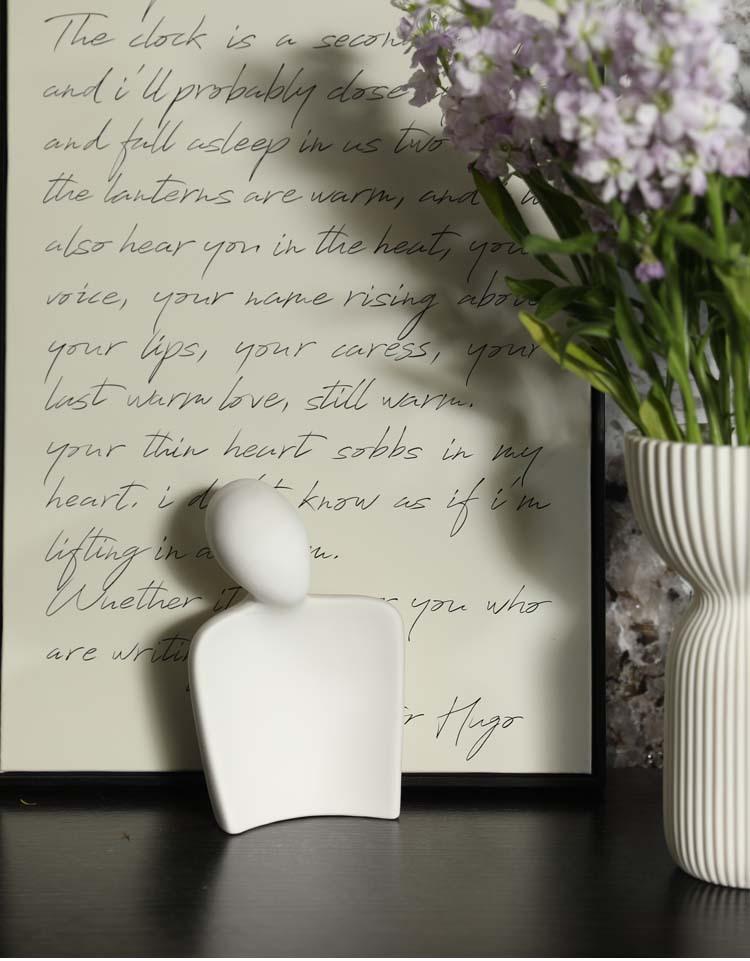 The clock is a
and i'll probably close
and fall asleep in us two
the lanterns are warm, and
also hear you in the heat, your
voice, your name rising above
your lips, your caress, your
last warm love, still warm.
your thin heart sobbs in my
heart. i know as if i'm
lifting in a
Whether you who
are
Hugo